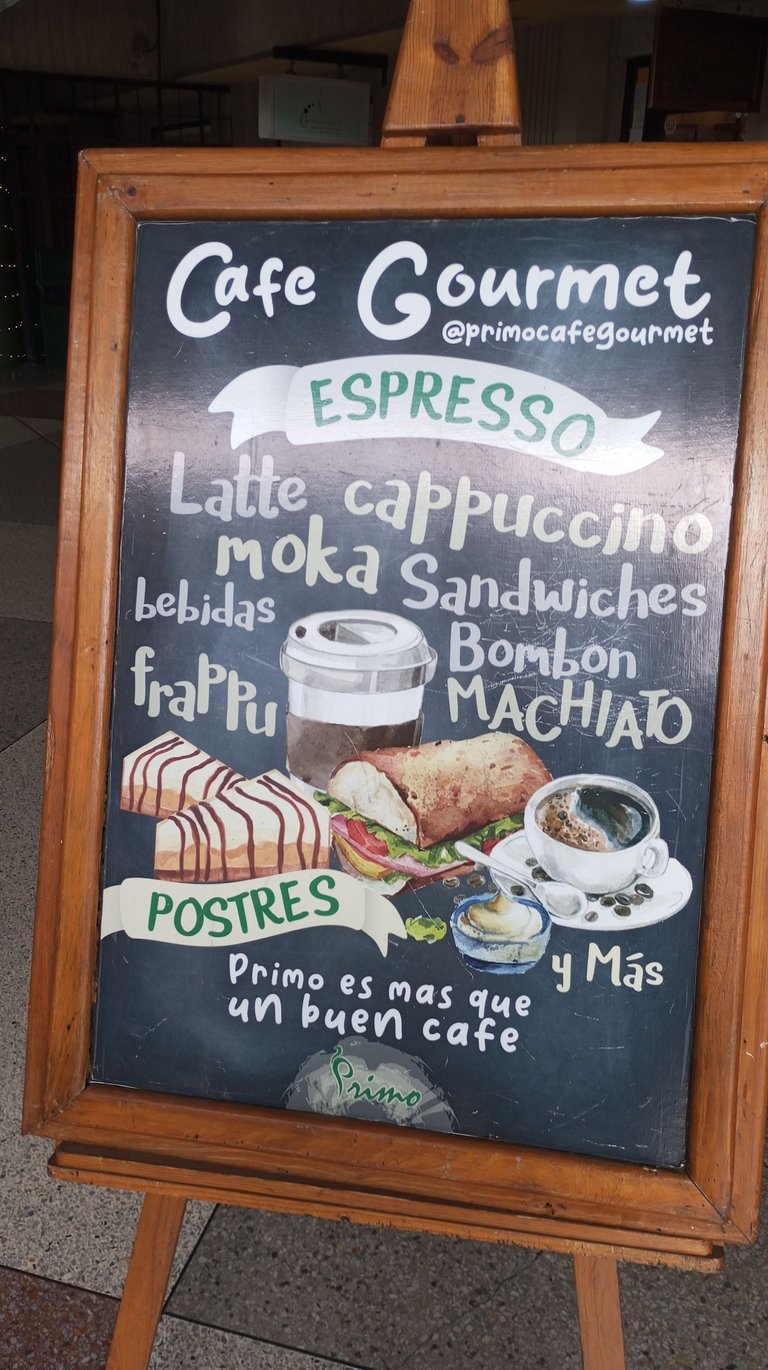 Cafe Gourmet
@primocafegourmet
ESPRESSO
Latte cappuccino
moka Sandwiches
bebidas
Bombon
frappu
MACHIATO
POSTRES
y Más
Primo es mas que
un buen cafe
Primo